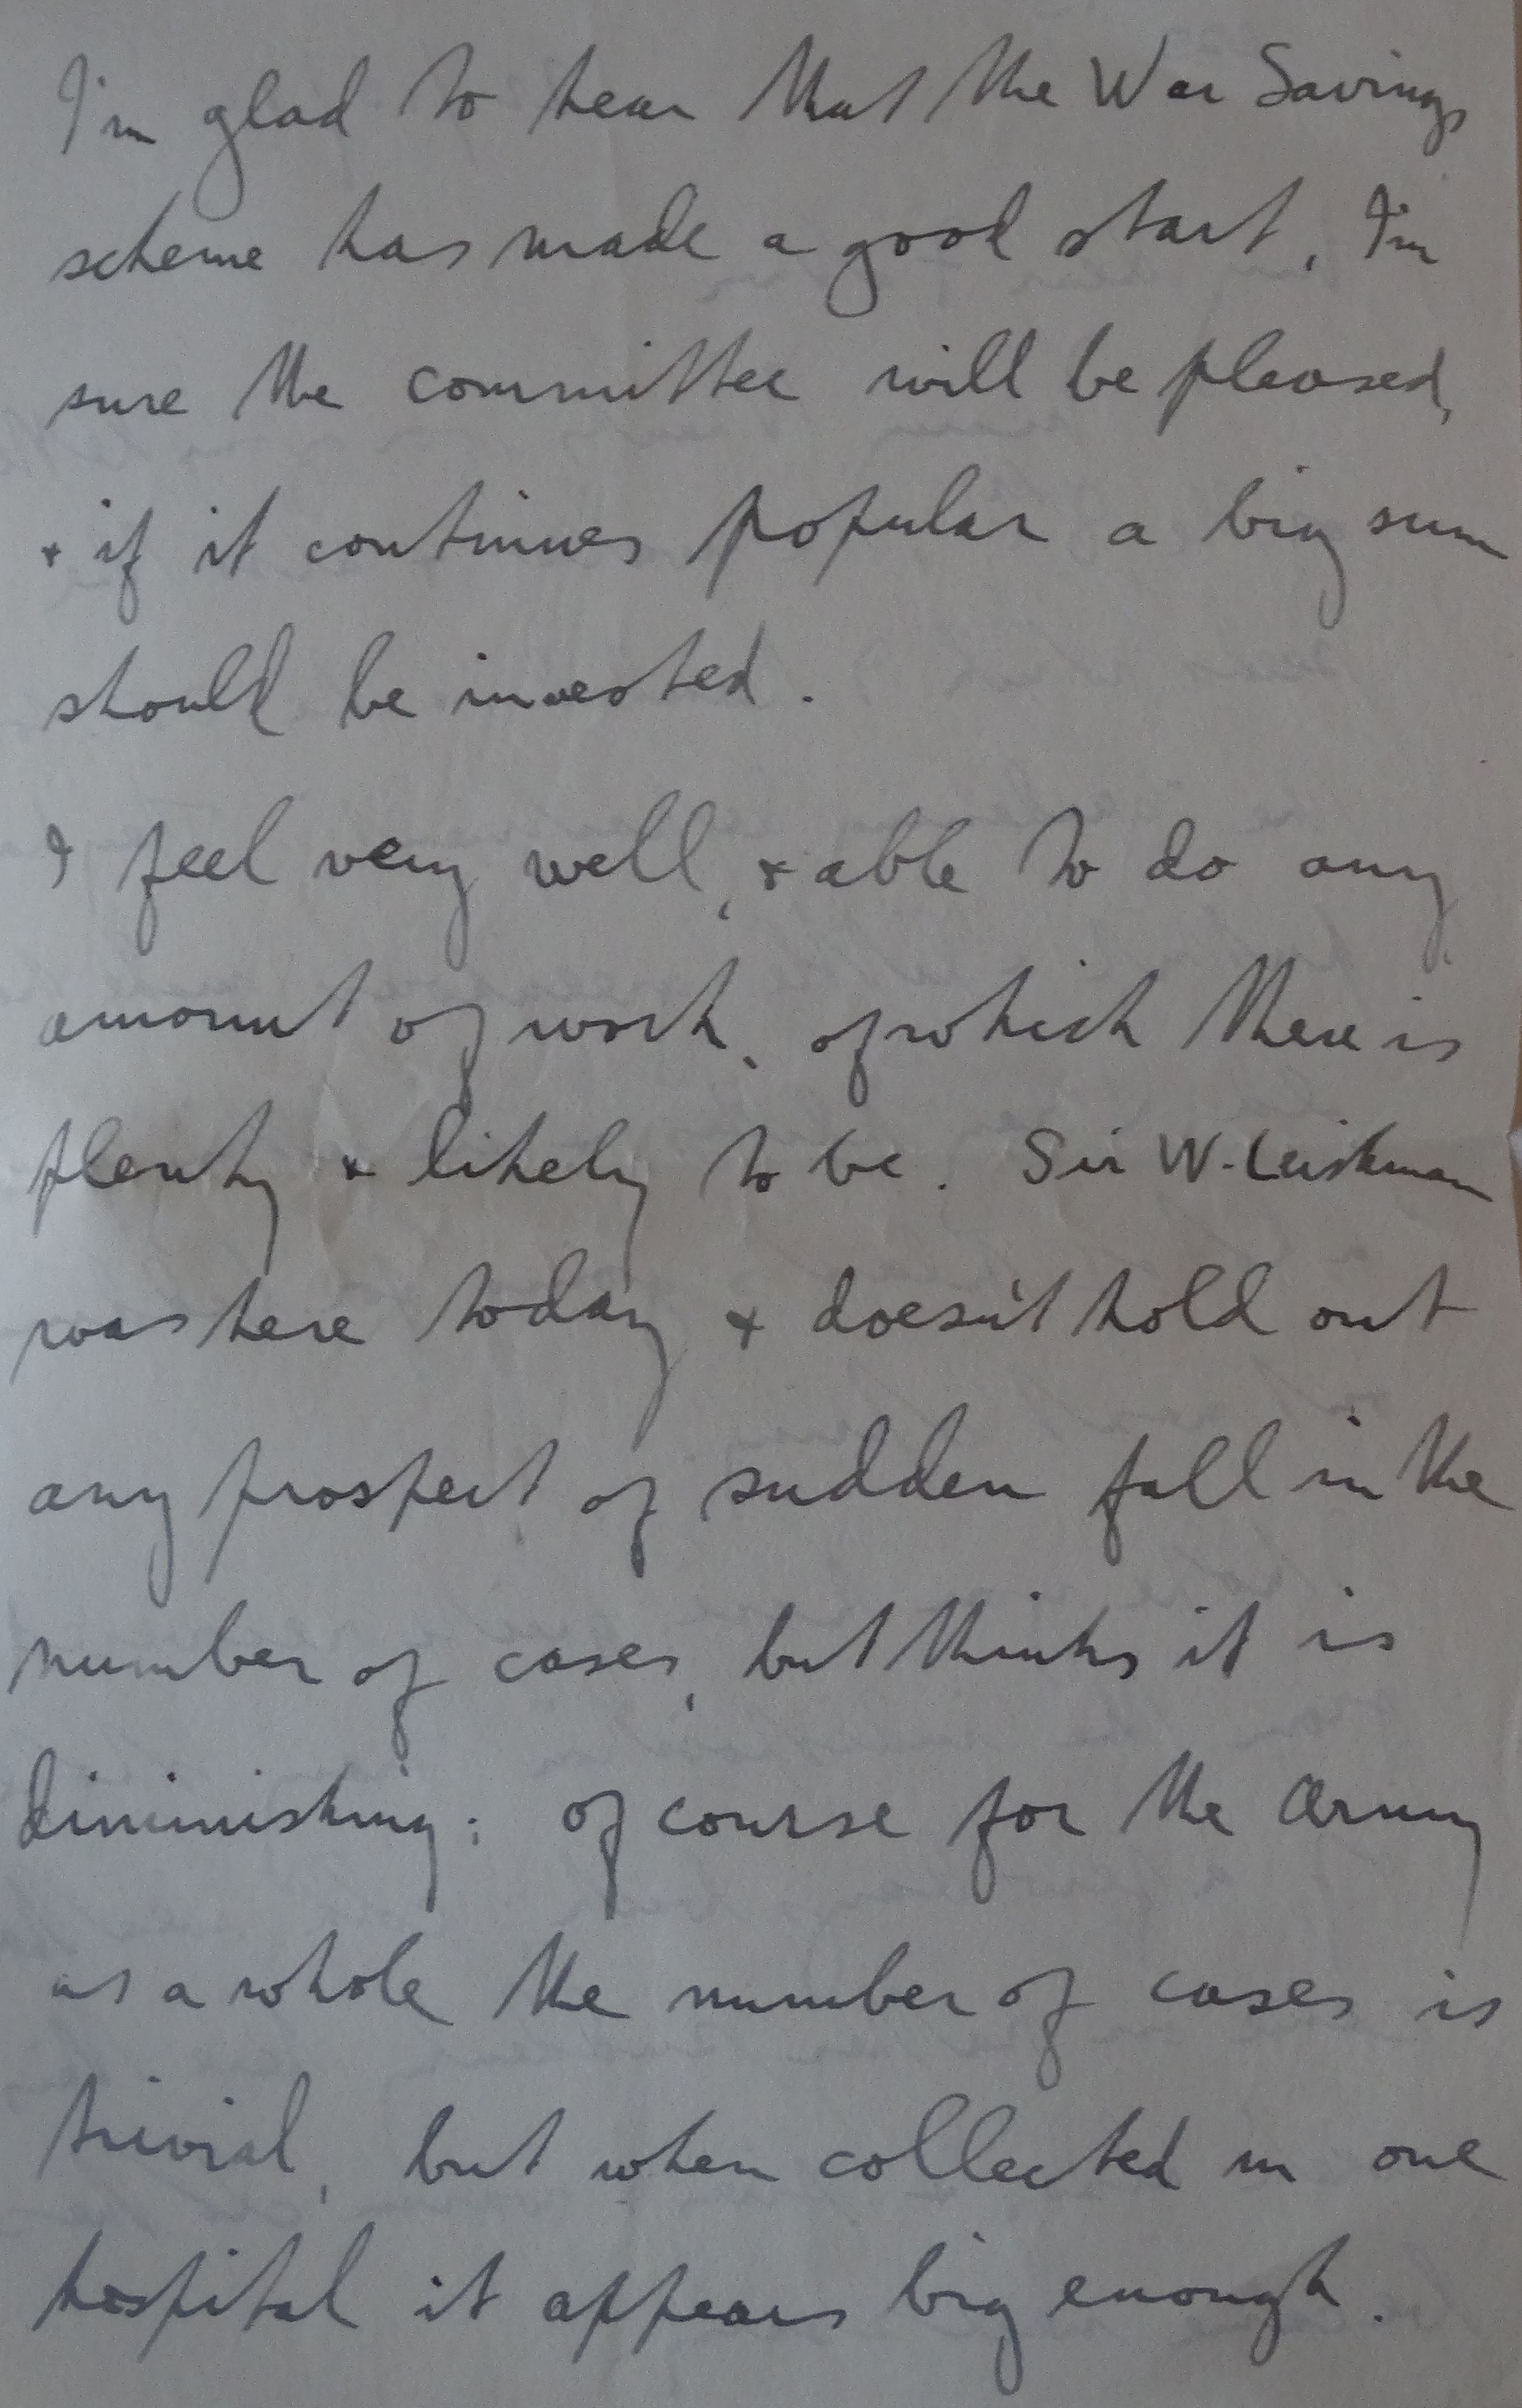 I'm glad to hear that the War Savings
scheme has made a good start, I'm
sure the committee will be pleased,
+ if it continues popular a big sum
should be invested.
I feel very well, + able to do any
amount of work, of which there is
plenty + likely to be. Sir W. Leishman
was here today + doesn't hold out
any prospect of sudden fall in the
number of cases, but thinks it is
diminishing: of course for the Army
as a whole the number of cases is
trivial, but when collected in one
hospital it appears big enough.